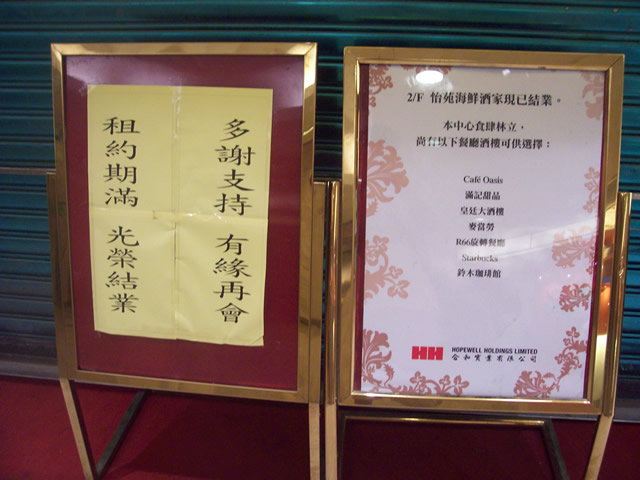 多謝支持 有緣再會
租約期滿 光榮結業
2/F 怡苑海鮮酒家現已結業。
本中心食肆林立，
尚有以下餐廳酒樓可供選擇：
Café Oasis
滿記甜品
皇廷大酒樓
麥當勞
R66旋轉餐廳
Starbucks
鈴木珈琲館
HH HOPEWELL HOLDINGS LIMITED
合和實業有限公司